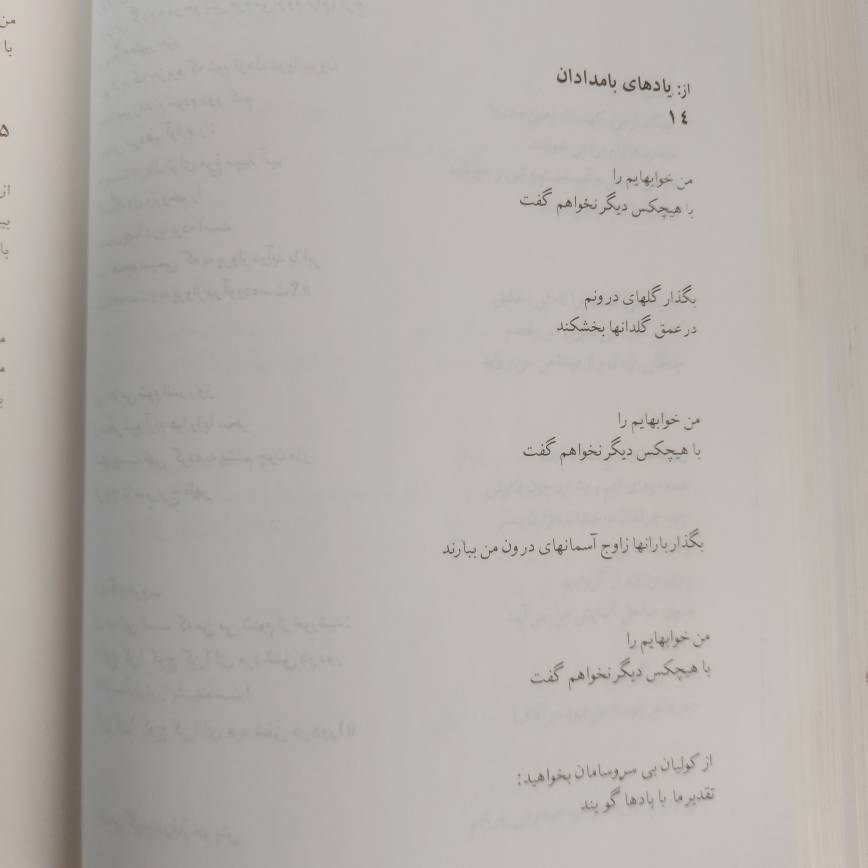 از: یادهای بامدادان
۱۴
من خوابهایم را
با هیچکس دیگر نخواهم گفت
بگذار گلهای درونم
در عمق گلدانها بخشکند
من خوابهایم را
با هیچکس دیگر نخواهم گفت
بگذار بارانها ز اوج آسمانهای درون من ببارند
من خوابهایم را
با هیچکس دیگر نخواهم گفت
از کولیان بی سروسامان بخواهید:
تقدیر ما با بادها گویند
من
با
۵
از
با